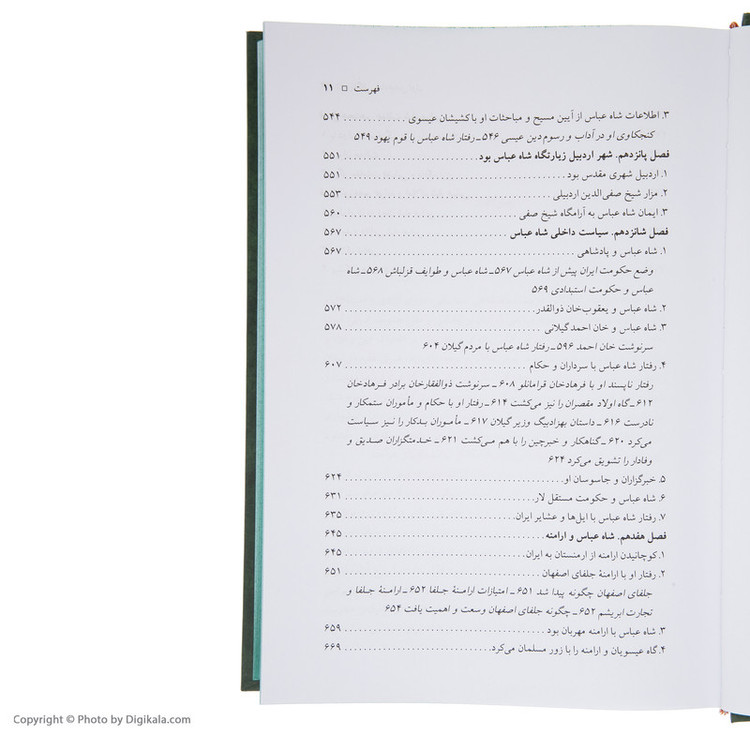 فهرست □ ۱۱
۳. اطلاعات شاه عباس از آیین مسیح و مباحثات او با کشیشان عیسوی ............ ۵۴۴
کنجکاوی او در آداب و رسوم دین عیسی ۵۴۶ ـ رفتار شاه عباس با قوم یهود ۵۴۹
فصل پانزدهم. شهر اردبیل زیارتگاه شاه عباس بود ............ ۵۵۱
۱. اردبیل شهری مقدس بود ............ ۵۵۱
۲. مزار شیخ صفی‌الدین اردبیلی ............ ۵۵۳
۳. ایمان شاه عباس به آرامگاه شیخ صفی ............ ۵۶۰
فصل شانزدهم. سیاست داخلی شاه عباس ............ ۵۶۷
۱. شاه عباس و پادشاهی ............ ۵۶۷
وضع حکومت ایران پیش از شاه عباس ۵۶۷ ـ شاه عباس و طوایف قزلباش ۵۶۸ ـ شاه
عباس و حکومت استبدادی ۵۶۹
۲. شاه عباس و یعقوب‌خان ذوالقدر ............ ۵۷۲
۳. شاه عباس و خان احمد گیلانی ............ ۵۷۸
سرنوشت خان احمد ۵۹۶ ـ رفتار شاه عباس با مردم گیلان ۶۰۴
۴. رفتار شاه عباس با سرداران و حکام ............ ۶۰۷
رفتار ناپسند او با فرهادخان قرامانلو ۶۰۸ ـ سرنوشت ذوالفقارخان برادر فرهادخان
۶۱۲ ـ گاه اولاد مقصران را نیز می‌کشت ۶۱۴ ـ رفتار او با حکام و مأموران ستمکار و
نادرست ۶۱۶ ـ داستان بهزادبیگ وزیر گیلان ۶۱۷ ـ مأموران بدکار را نیز سیاست
می‌کرد ۶۲۰ ـ گناهکار و خبرچین را با هم می‌کشت ۶۲۱ ـ خدمتگزاران صدیق و
وفادار را تشویق می‌کرد ۶۲۴
۵. خبرگزاران و جاسوسان او ............ ۶۲۴
۶. شاه عباس و حکومت مستقل لار ............ ۶۳۱
۷. رفتار شاه عباس با ایل‌ها و عشایر ایران ............ ۶۳۵
فصل هفدهم. شاه عباس و ارامنه ............ ۶۴۵
۱. کوچانیدن ارامنه از ارمنستان به ایران ............ ۶۴۵
۲. رفتار او با ارامنهٔ جلفای اصفهان ............ ۶۵۱
جلفای اصفهان چگونه پیدا شد ۶۵۱ ـ امتیازات ارامنهٔ جلفا ۶۵۲ ـ ارامنهٔ جلفا و
تجارت ابریشم ۶۵۲ ـ چگونه جلفای اصفهان وسعت و اهمیت یافت ۶۵۴
۳. شاه عباس با ارامنه مهربان بود ............ ۶۵۹
۴. گاه عیسویان و ارامنه را با زور مسلمان می‌کرد ............ ۶۶۹
Copyright © Photo by Digikala.com